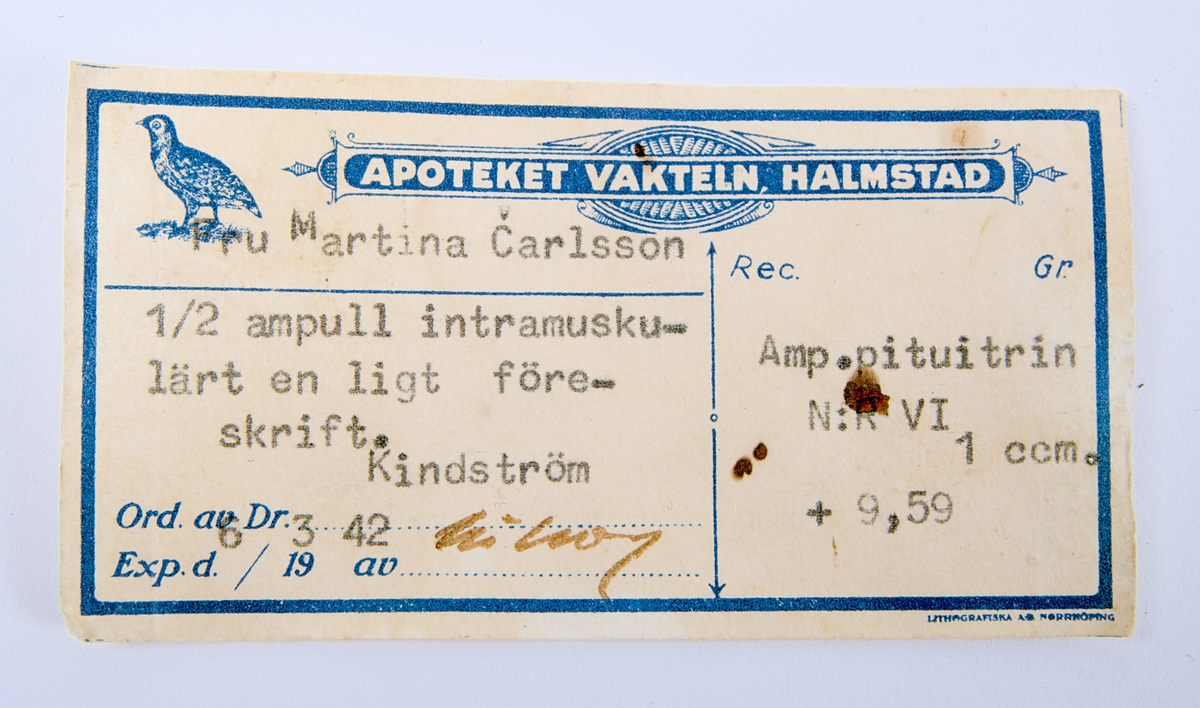 APOTEKET VAKTELN, HALMSTAD
Fru Martina Carlsson
1/2 ampull intramusku-
lärt en ligt före-
skrift.
Kindström
Ord. av Dr.
6 3 42
Exp. d. / 19 av
Rec. Gr.
Amp.pituitrin
N:R VI
1 ccm.
+ 9,59
LITHOGRAFISKA A.B. NORRKÖPING